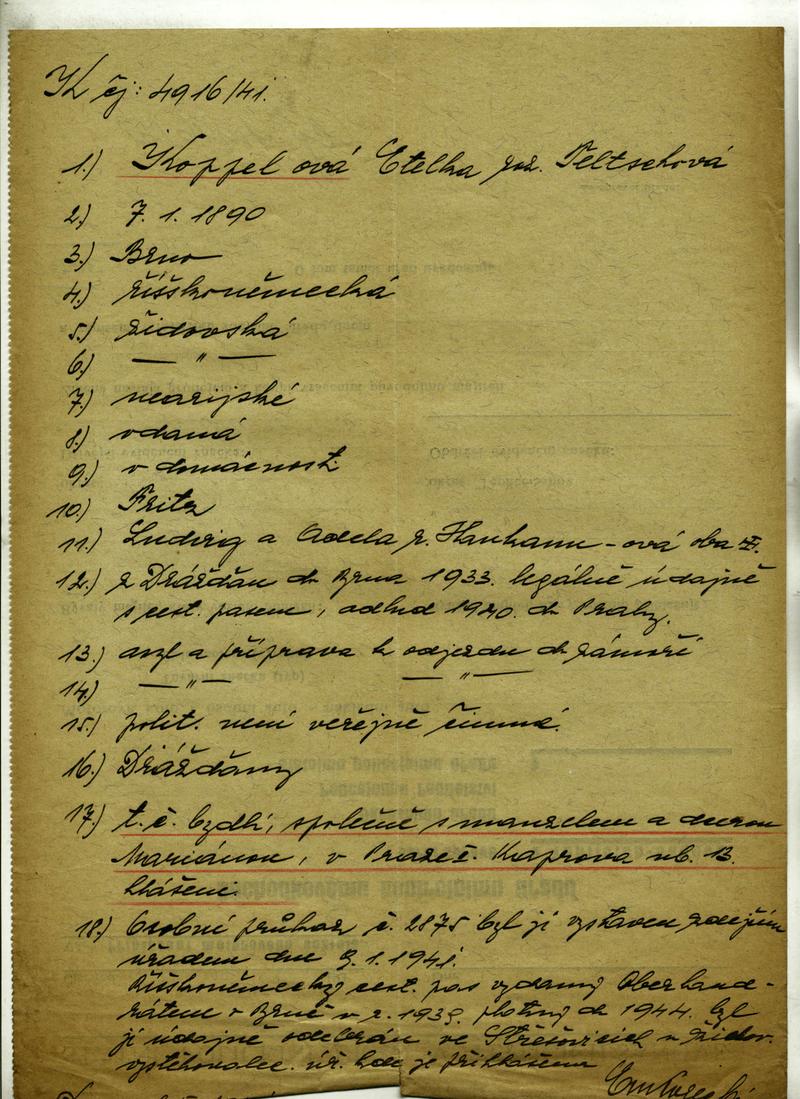 K čj: 4916/41.
1.) Koppelová Etelka roz. Feltschová
2.) 7. 1. 1890
3.) Brno
4.) říšskoněmecká
5.) židovská
6.) — " —
7.) nearijské
8.) vdaná
9.) v domácnosti
10.) Fritz
11.) Ludwig a Adela r.
12.) z Drážďan do Brna 1933. legálně údajně
s cest. pasem, odtud 1940. do Prahy.
13.) azyl a příprava k odjezdu do zámoří
14.) — " — — " —
15.) polit. není veřejně činná.
16.) Drážďany
17.) t. č. bydlí, společně s manželem a dcerou
Mariánou, v Praze Kaprova ul. 13.
hlášeni.
18.) Osobní průkaz č. 2875 byl jí vystaven zdejším
úřadem dne 9. 1. 1941.
Říšskoněmecký cest. pas vydaný Oberland-
rátem v Brně v r. 1939. platný do 1944. byl
jí údajně odebrán ve Střešovicích u židov.
vystěhovalec. úř. kde je přihlášena